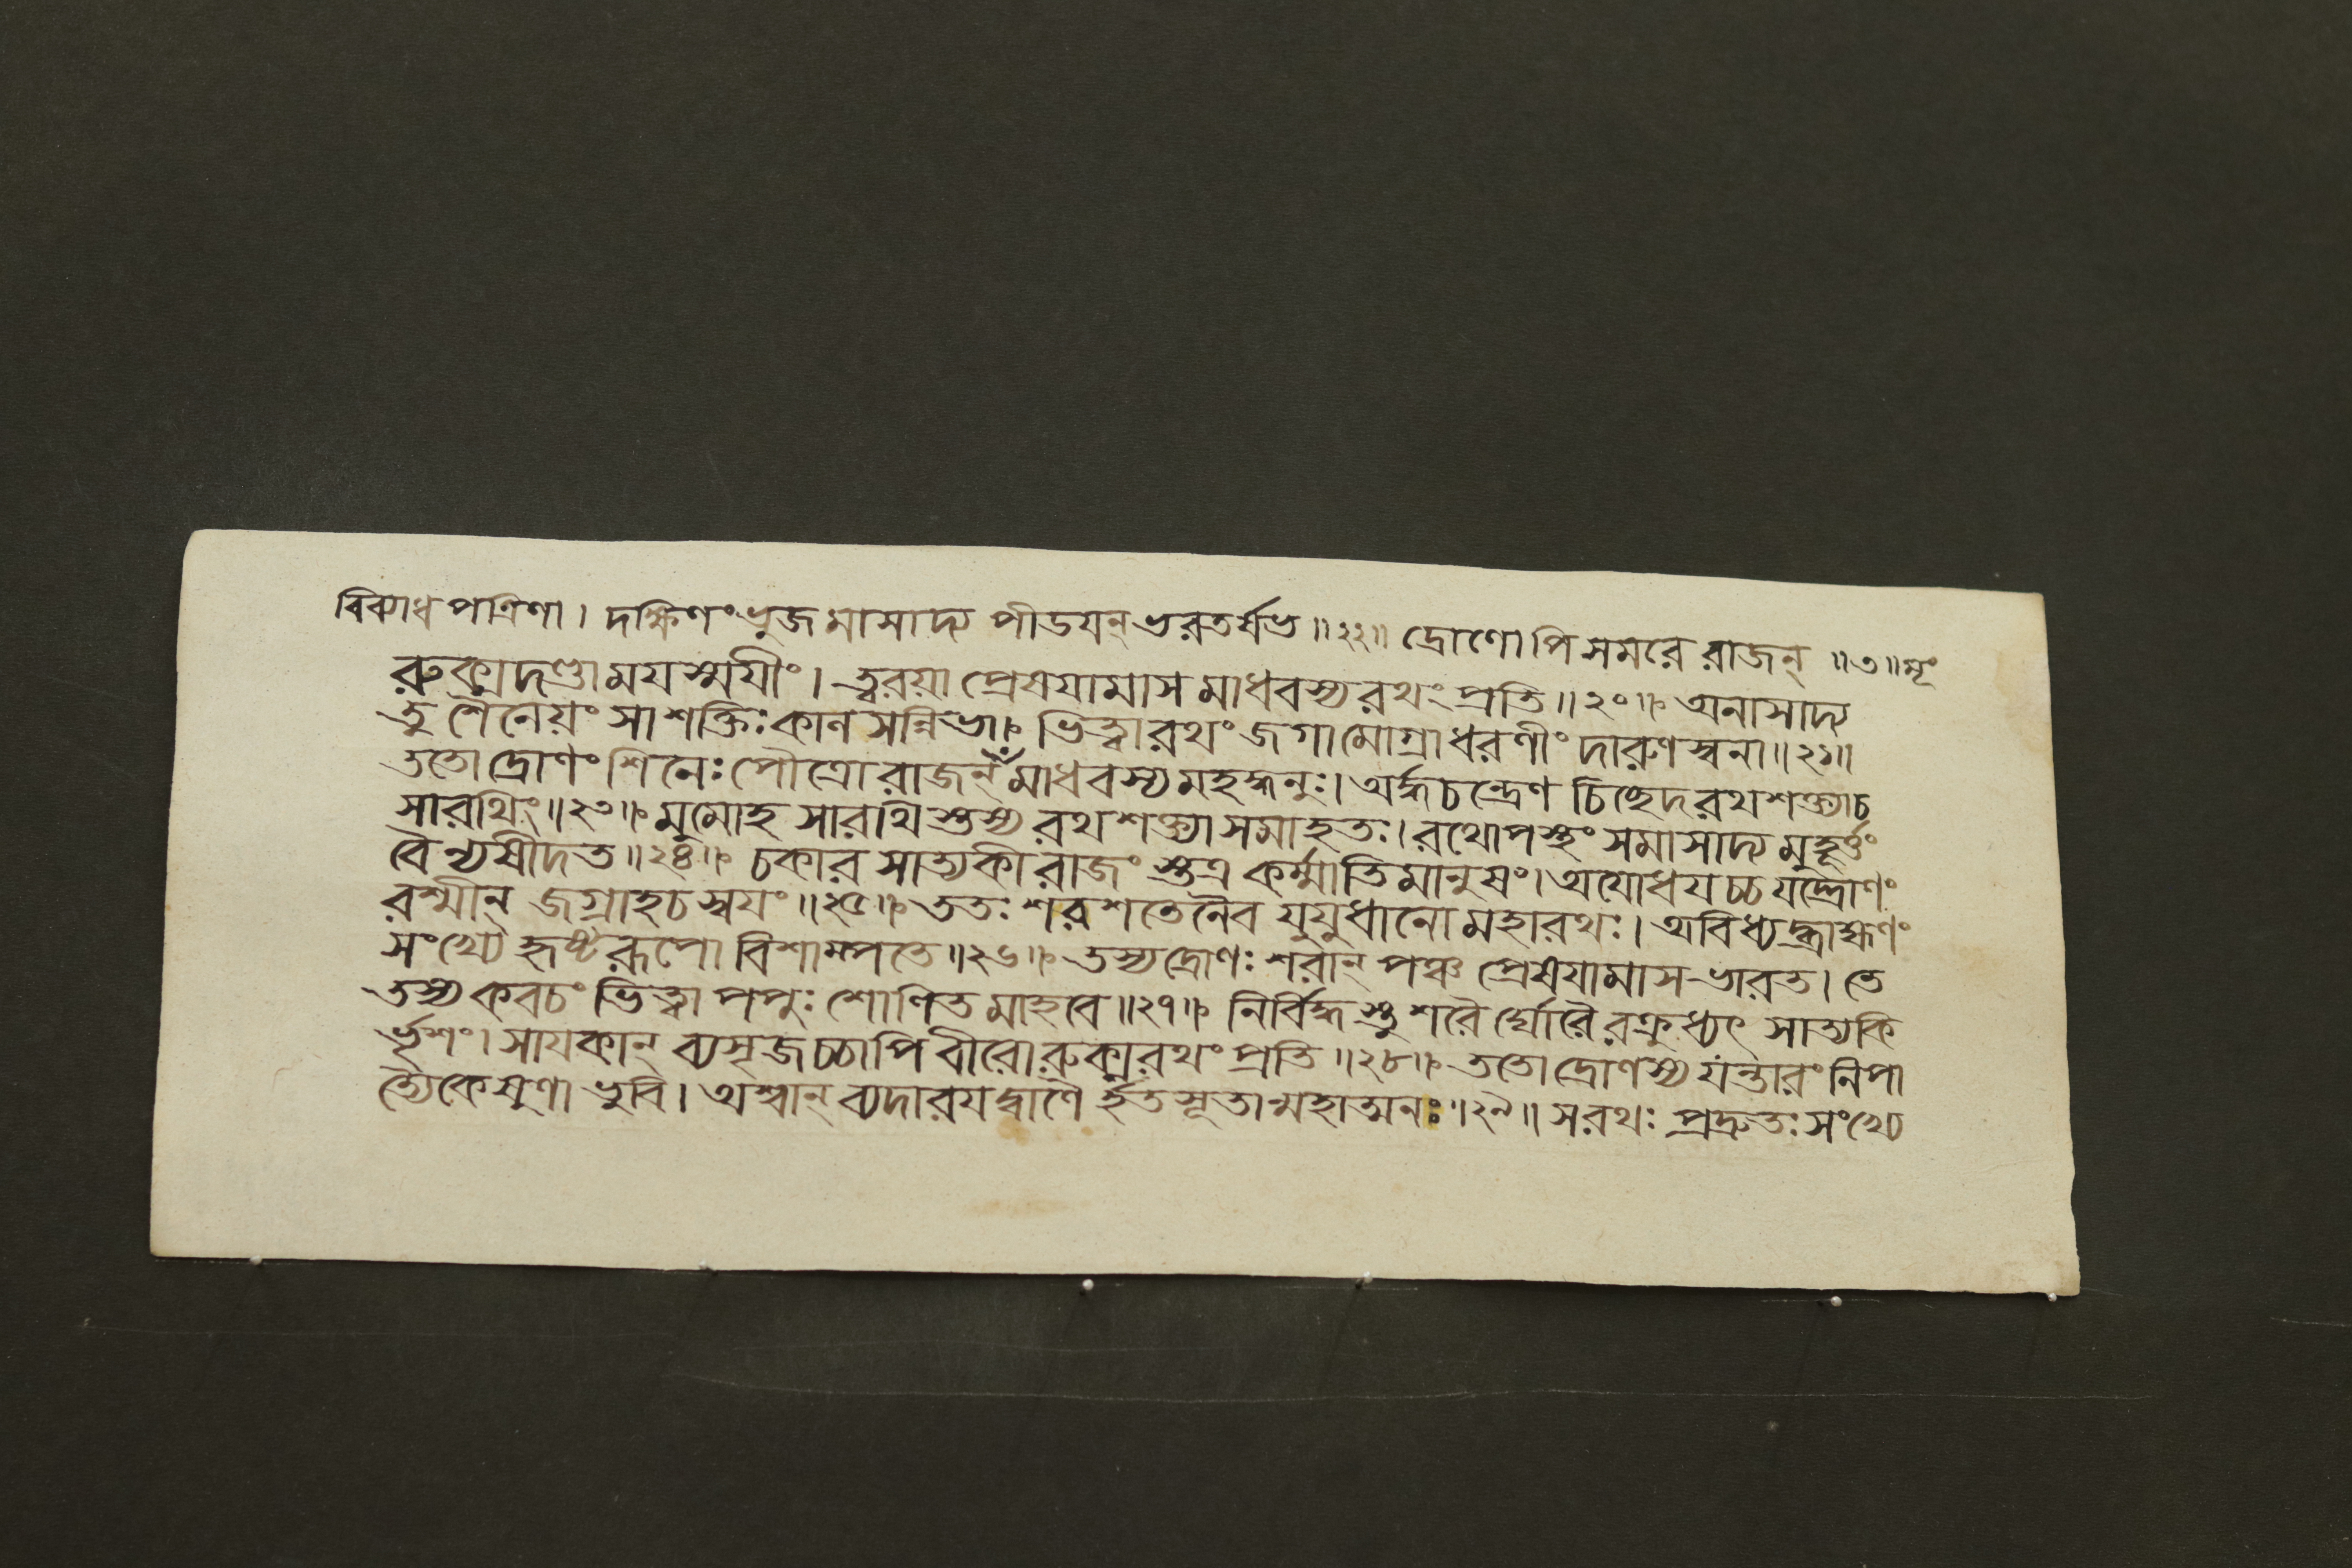 বিব্যাধ পত্রিণা। দক্ষিণং ভুজমাসাদ্য পীডযন্ ভরতর্ষভ॥২২॥ দ্রোণোপি সমরে রাজন্ ॥৩॥
রুক্মদণ্ডামযস্ময়ীং। ত্বরয়া প্রেষযামাস মাধবস্য রথং প্রতি॥২০॥ অনাসাদ্য
তু শৈনেয়ং সা শক্তিঃ কাল সন্নিভা ভিত্বা রথং জগামোগ্রা ধরণীং দারুণস্বনা॥২১॥
ততো দ্রোণং শিনেঃ পৌত্রো রাজন্ মাধবস্য মহদ্ধনুঃ। অর্দ্ধচন্দ্রেণ চিচ্ছেদ রথশক্ত্যা চ
সারথিং॥২৩॥ মুমোহ সারথিস্তস্য রথশক্ত্যা সমাহতঃ। রথোপস্থং সমাসাদ্য মুহূর্ত্তং
বৈ ন্যষীদত॥২৪॥ চকার সাত্যকী রাজং স্তত্র কর্ম্মাতিমানুষং। অযোধযচ্চ যদ্দ্রোণং
রশ্মীন্ জগ্রাহ চ স্বযং॥২৫॥ ততঃ শরশতেনৈব যুযুধানো মহারথঃ। অবিধ্যদ্ব্রাহ্মণং
সংখ্যে হৃষ্টরূপো বিশাম্পতে॥২৬॥ তস্য দ্রোণঃ শরান্ পঞ্চ প্রেষযামাস ভারত। তে
তস্য কবচং ভিত্বা পপুঃ শোণিতমাহবে॥২৭॥ নির্বিদ্ধস্তু শরৈর্ঘোরৈরক্রুধ্যৎ সাত্যকি
র্ভৃশং। সাযকান্ ব্যসৃজচ্চাপি বীরো রুক্মরথং প্রতি॥২৮॥ ততো দ্রোণস্য যন্তারং নিপা
ত্যৈকেষুণা ভুবি। অশ্বান্ ব্যদারযদ্বাণৈ র্হতসূতান্মহাত্মনঃ॥২৯॥ স রথঃ প্রদ্রুতঃ সংখ্যে